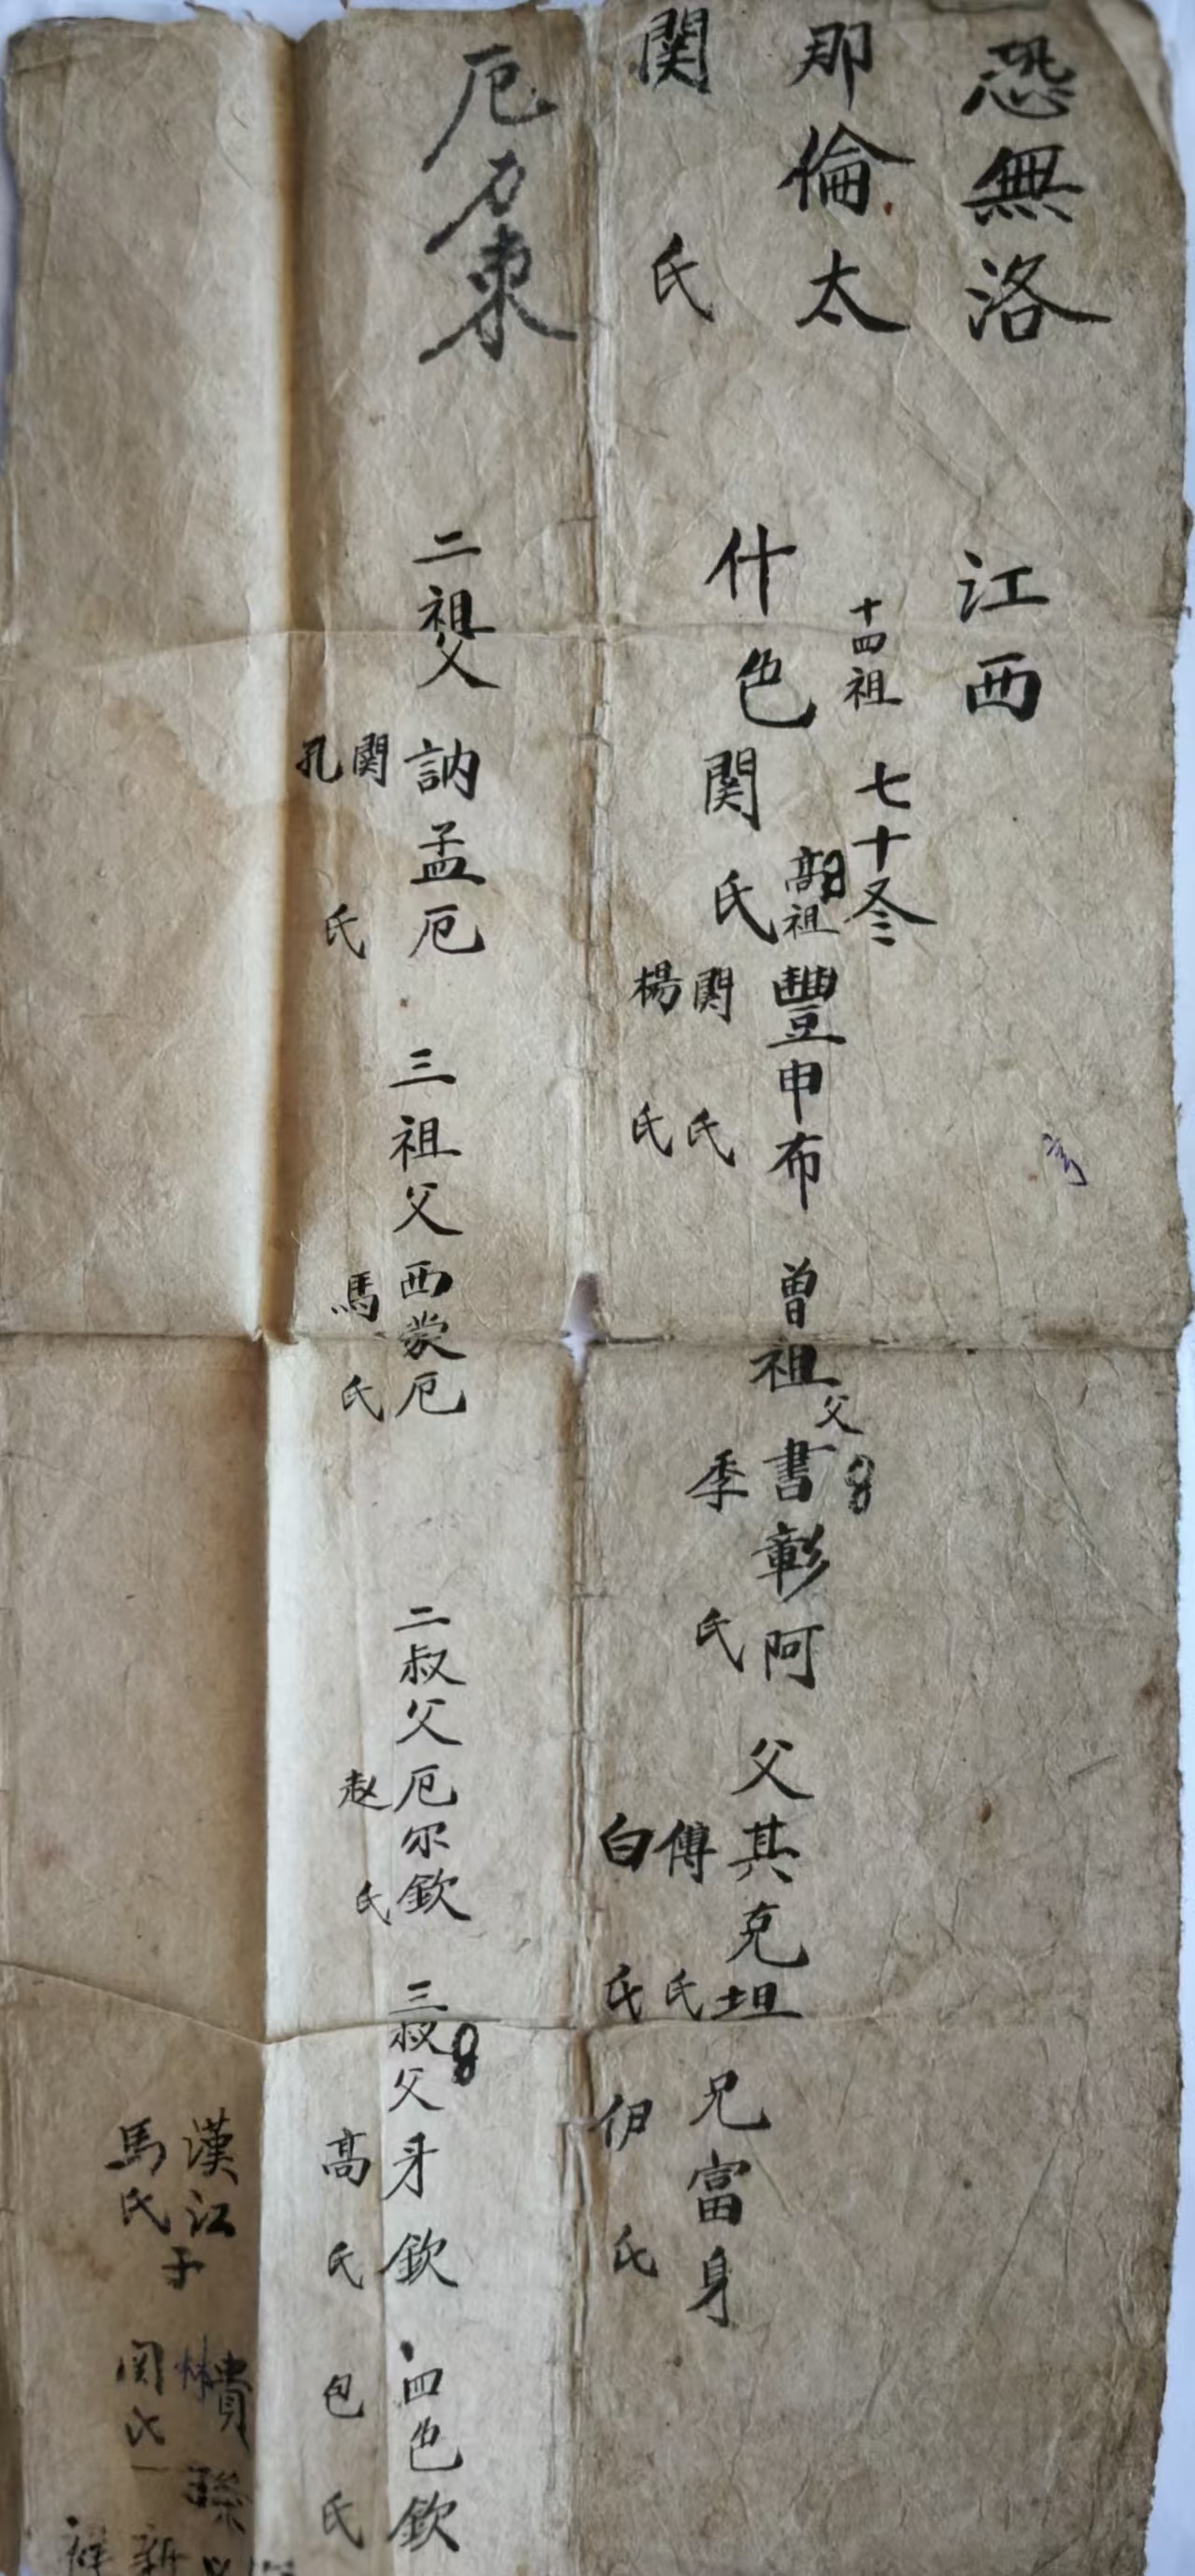 恐無洛
江西
那倫太
十四祖
七十冬
関氏
什色
関氏
高祖
豐申布
関氏
楊氏
曽祖父
書彰阿
季氏
父其克坦
傅氏
白氏
兄富身
伊氏
厄力東
二祖父
訥孟厄
関氏
孔
三祖父西蒙厄
馬氏
二叔父厄尔欽
赵氏
三叔父牙欽
高氏
四色欽
包氏
漢江
馬氏
子
林貴
関氏
孫
新
祥